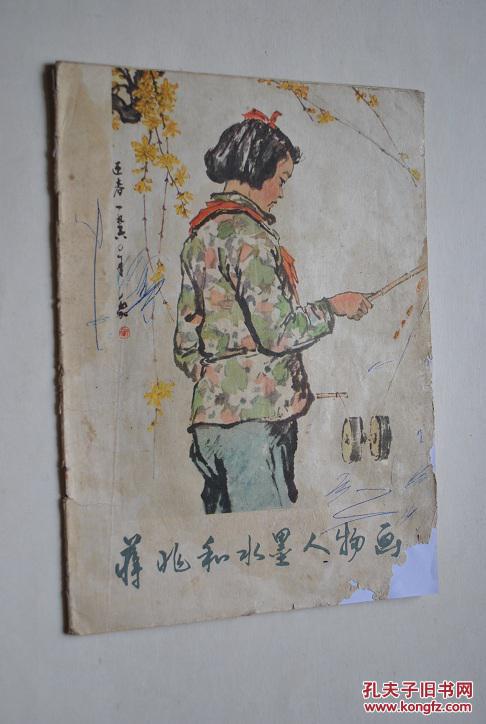 迎春 一九六〇年 兆和
蒋兆和水墨人物画
孔夫子旧书网
www.kongfz.com